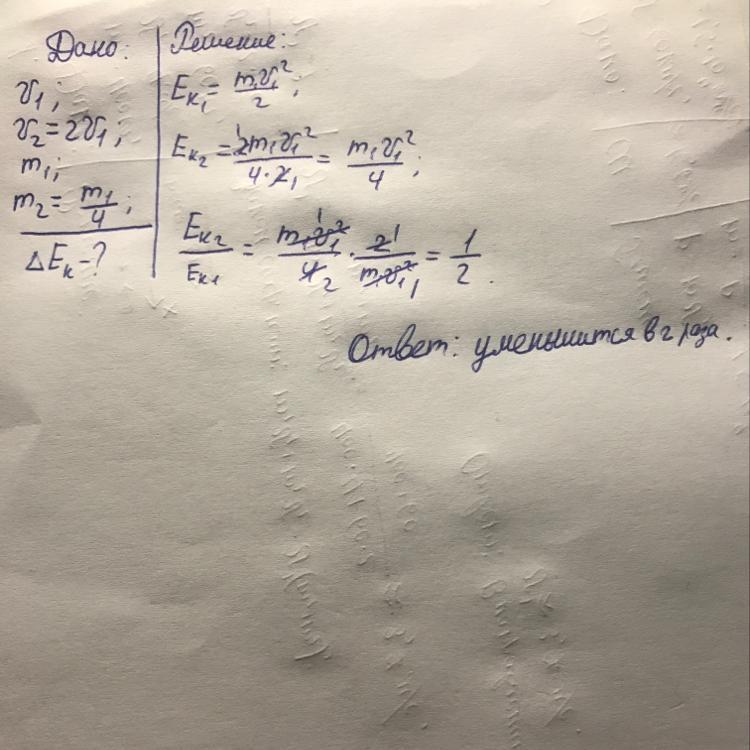 Дано:
υ₁;
υ₂ = 2υ₁;
m₁;
m₂ = m₁/4;
ΔEк - ?
Решение:
Eк₁ = m₁υ₁²/2;
Eк₂ = 2m₁υ₁²/4·2 = m₁υ₁²/4;
Eк₂/Eк₁ = m₁υ₁²/4 · 2/m₁υ₁² = 1/2.
Ответ: уменьшится в 2 раза.